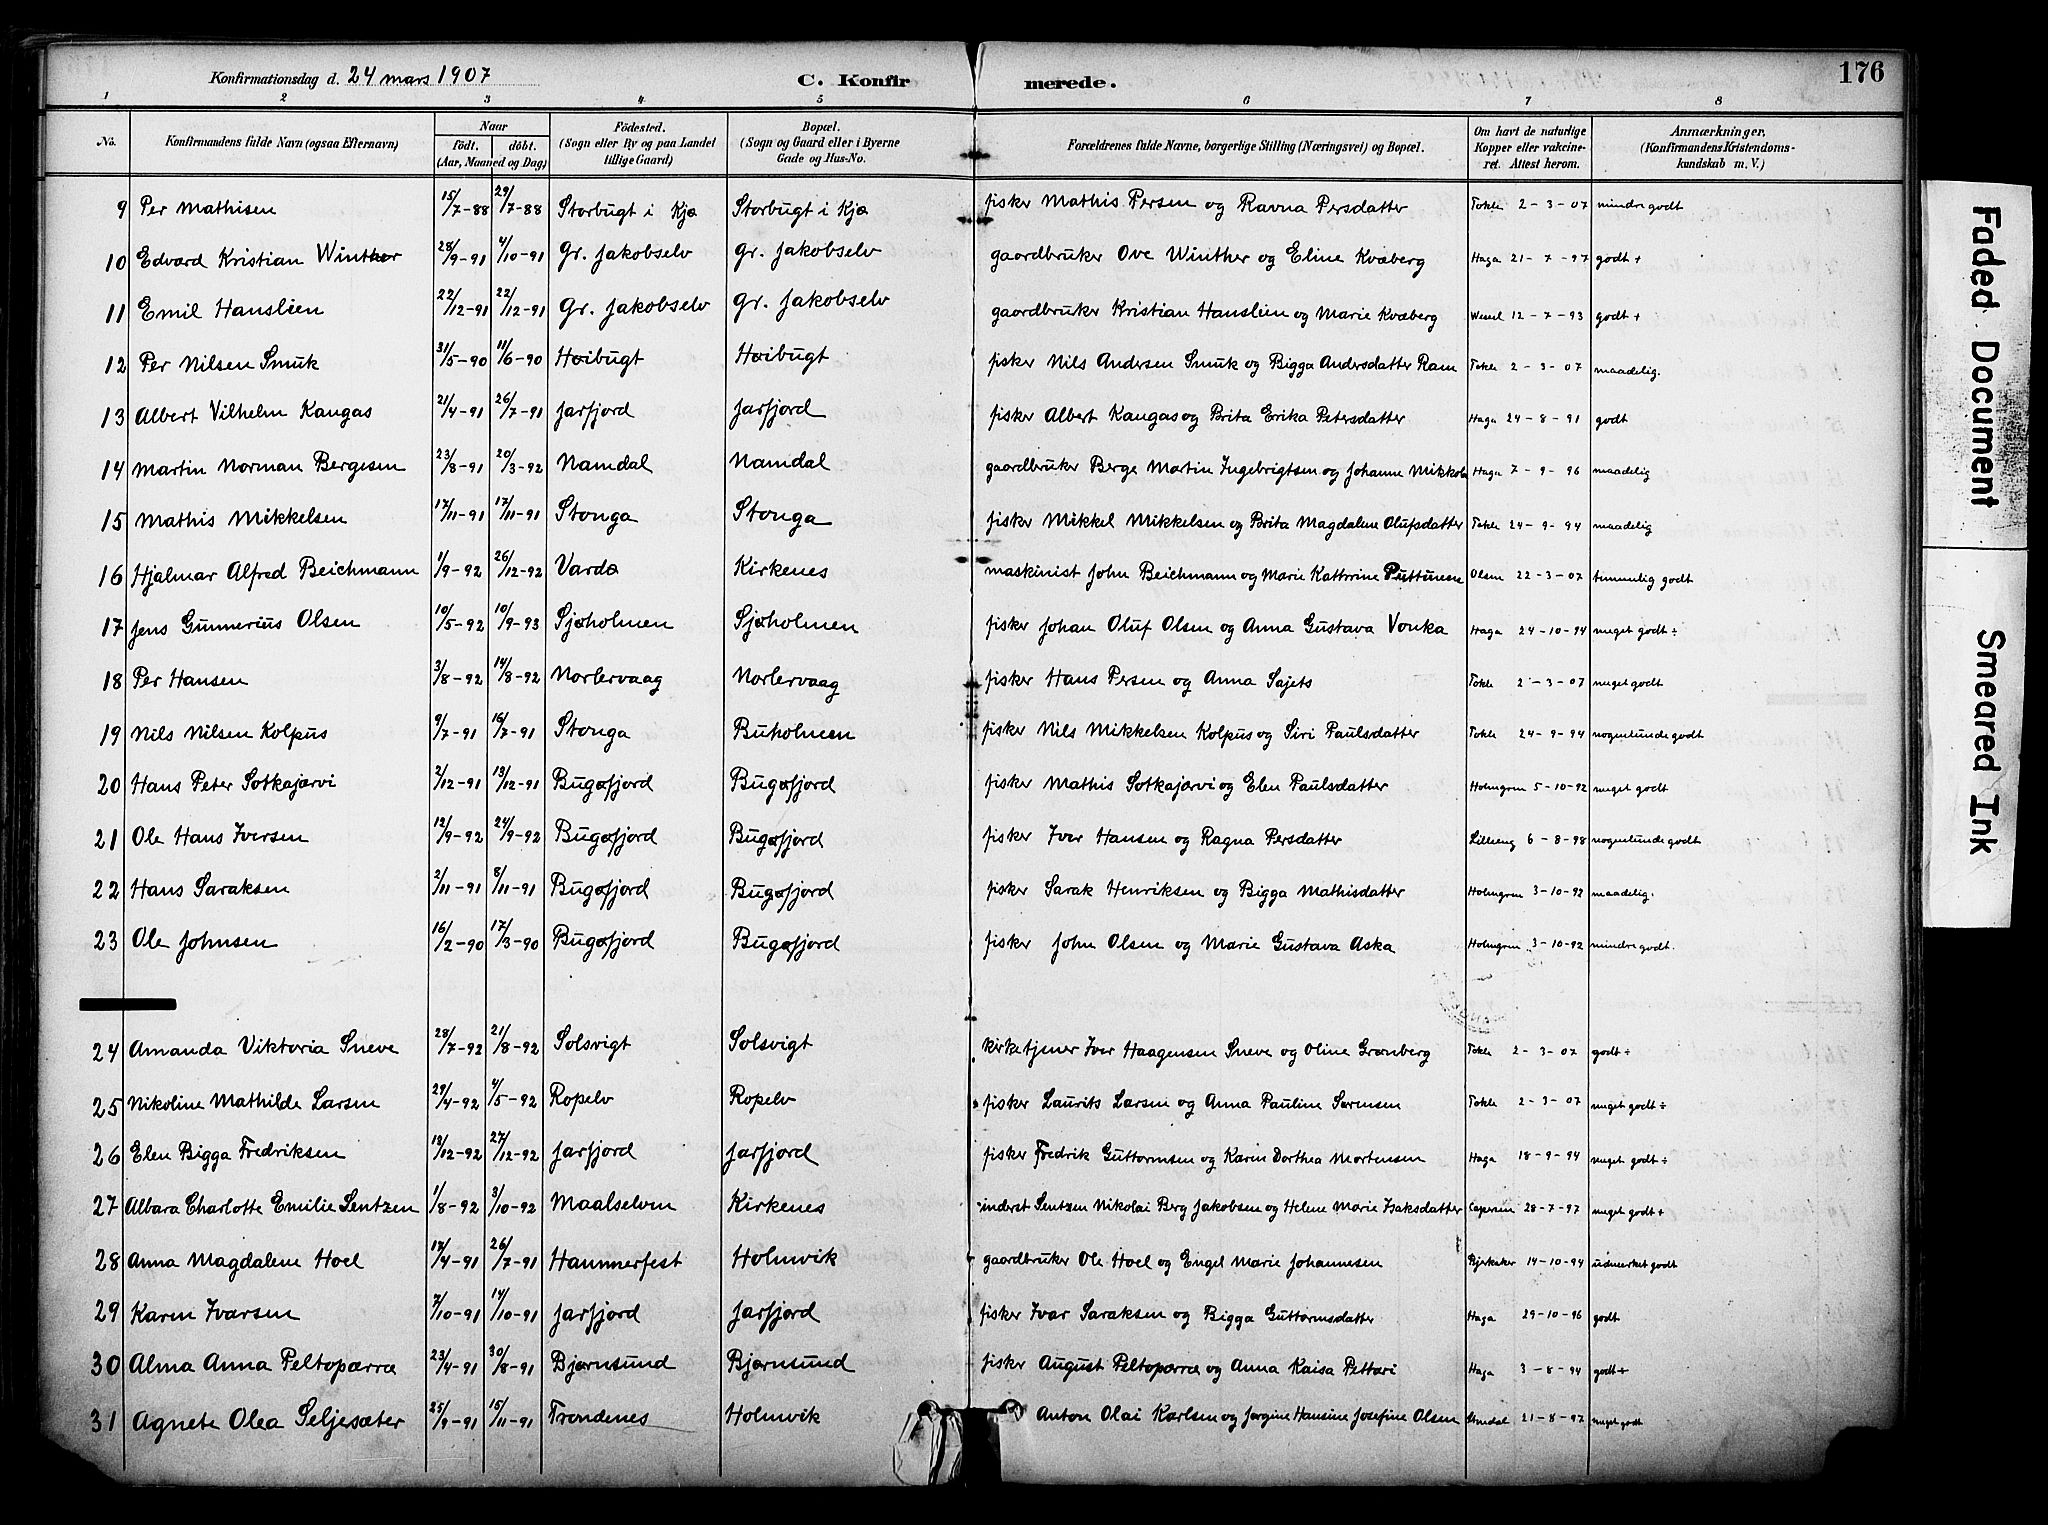 Konfirmationsdag d. 24 mars 1907 C. Konfirmerede. 176
1 2 3 4 5 6 7 8
No. Konfirmandens fulde Navn (ogsaa Efternavn) Naar födt. döbt. (Aar, Maaned og Dag) Födested. (Sogn eller By og paa Landet tillige Gaard) Bopæl. (Sogn og Gaard eller i Byerne Gade og Hus-No. Forældrenes fulde Navne, borgerlige Stilling (Næringsvei) og Bopæl. Om havt de naturlige Kopper eller vakcineret. Attest herom. Anmærkninger. (Konfirmandens Kristendomskundskab m. V.)
9 Per Mathisen 15/7-88 29/7-88 Storbugt i Kjø Storbugt i Kjø fisker Mathis Persen og Ravna Persdatter Tokle 2-3-07 mindre godt
10 Edvard Kristian Winther 28/9-91 4/10-91 Gr. Jakobselv Gr. Jakobselv gaardbruker Ove Winther og Eline Kvæberg Haga 21-7-97 godt +
11 Emil Hanslien 22/12-91 22/12-91 Gr. Jakobselv Gr. Jakobselv gaardbruker Kristian Hanslien og Marie Kvæberg Wessel 12-7-93 godt +
12 Per Nilsen Smuk 31/5-90 11/6-90 Høibugt Høibugt fisker Nils Andersen Smuk og Bigga Andersdatter Ram Tokle 2-3-07 maadelig.
13 Albert Vilhelm Kangas 21/4-91 26/7-91 Jarfjord Jarfjord fisker Albert Kangas og Brita Erika Petersdatter Haga 24-8-91 godt
14 Martin Norman Bergesen 23/8-91 20/3-92 Namdal Namdal gaardbruker Berge Martin Ingebrigtsen og Johanne Mikkola Haga 7-9-96 maadelig
15 Mathis Mikkelsen 17/11-91 17/11-91 Stonga Stonga fisker Mikkel Mikkelsen og Brita Magdalene Olufsdatter Tokle 24-9-94 maadelig
16 Hjalmar Alfred Beichmann 1/9-92 26/12-92 Vardø Kirkenes maskinist John Beichmann og Marie Kathrine Puttunen Olsen 22-3-07 temmelig godt
17 Jens Gunnerius Olsen 10/5-92 10/9-93 Sjøholmen Sjøholmen fisker Johan Oluf Olsen og Anna Gustava Vonka Haga 24-10-94 meget godt ÷
18 Per Hansen 3/8-92 14/8-92 Norlervaag Norlervaag fisker Hans Persen og Anna Sajets Tokle 2-3-07 meget godt
19 Nils Nilsen Kolpus 9/7-91 16/7-91 Stonga Buholmen fisker Nils Mikkelsen Kolpus og Siri Paulsdatter Tokle 24-9-94 nogenlunde godt
20 Hans Peter Sotkajærvi 2/12-91 13/12-91 Bugøfjord Bugøfjord fisker Mathis Sotkajærvi og Elen Paulsdatter Holmgren 5-10-92 meget godt
21 Ole Hans Iversen 12/9-92 24/9-92 Bugøfjord Bugøfjord fisker Iver Hansen og Ragna Persdatter Lilleeng 6-8-98 nogenlunde godt
22 Hans Saraksen 2/11-91 8/11-91 Bugøfjord Bugøfjord fisker Sarak Henriksen og Bigga Mathisdatter Holmgren 3-10-92 maadelig.
23 Ole Johnsen 16/2-90 17/3-90 Bugøfjord Bugøfjord fisker John Olsen og Marie Gustava Aska Holmgren 3-10-92 mindre godt.
24 Amanda Viktoria Sneve 28/7-92 21/8-92 Solsvigt Solsvigt kirketjener Iver Haagensen Sneve og Oline Grønberg Tokle 2-3-07 godt ÷
25 Nikoline Mathilde Larsen 29/4-92 4/5-92 Ropelv Ropelv fisker Laurits Larsen og Anna Pauline Sørensen Tokle 2-3-07 meget godt ÷
26 Elen Bigga Fredriksen 13/12-92 27/12-92 Jarfjord Jarfjord fisker Fredrik Guttormsen og Karen Dorthea Mortensen Haga 18-9-94 meget godt ÷
27 Albara Charlotte Emilie Sentzen 1/8-92 3/10-92 Maalselven Kirkenes inderst Sentzen Nikolai Berg Jakobsen og Helene Marie Isaksdatter 28-7-97 meget godt +
28 Anna Magdalene Hoel 17/4-91 26/7-91 Hammerfest Holmvik gaardbruker Ole Hoel og Engel Marie Johannesen Bjerkaker 14-10-94 udmerket godt
29 Karen Ivarsen 7/10-91 14/10-91 Jarfjord Jarfjord fisker Ivar Saraksen og Bigga Guttormsdatter Haga 29-10-96 godt
30 Alma Anna Peltopærræ 23/4-91 30/8-91 Bjørnsund Bjørnsund fisker August Peltopærræ og Anna Kaisa Pettæri Haga 3-8-94 godt +
31 Agnete Olea Seljesæter 25/9-91 15/11-91 Trondenes Holmvik Anton Olai Karlsen og Jørgine Hansine Josefine Olsen 21-8-97 meget godt
Faded Document
Smeared Ink